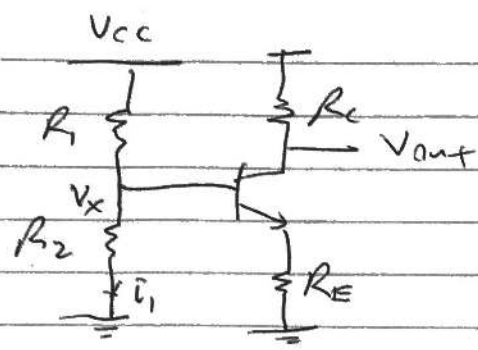 Vcc
R1
Rc
Vout
Vx
R2
i1
RE